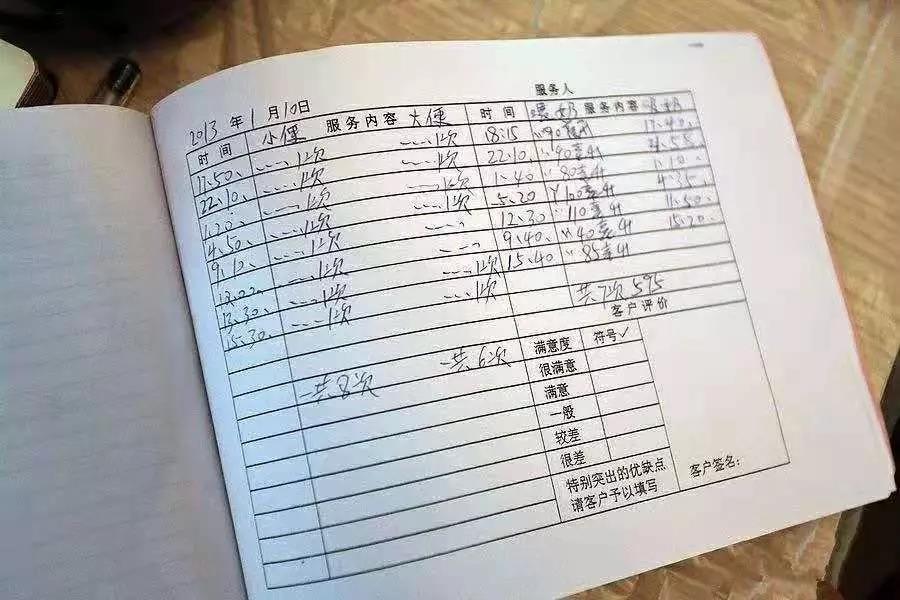 服务人
2013 年 1 月 10日
时 间 小便 服务内容 大便 时 间 喂奶 服务内容 吸奶
17、50、 ......1次 ......1次 18:15 〃90毫升 17、40、
22、10、 ......1次 ......1次 22、10、 〃90毫升 21、55
1、20、 ......1次 ......1次 1、40 〃80毫升 1、10、
4、50、 ......1次 ......1次 5、20 〃100毫升 4、35、
9、10、 ......1次 12、30 〃110毫升 11、50、
......1次 9、40、 〃40毫升 15、20、
13、30、 ......1次 ......1次 15、40 〃85毫升
15、30、 ......1次 ......1次
共7次 595
客户评价
一共8次 一共6次
满意度 符号✓
很满意
满意
一般
较差
很差
特别突出的优缺点
请客户予以填写
客户签名：